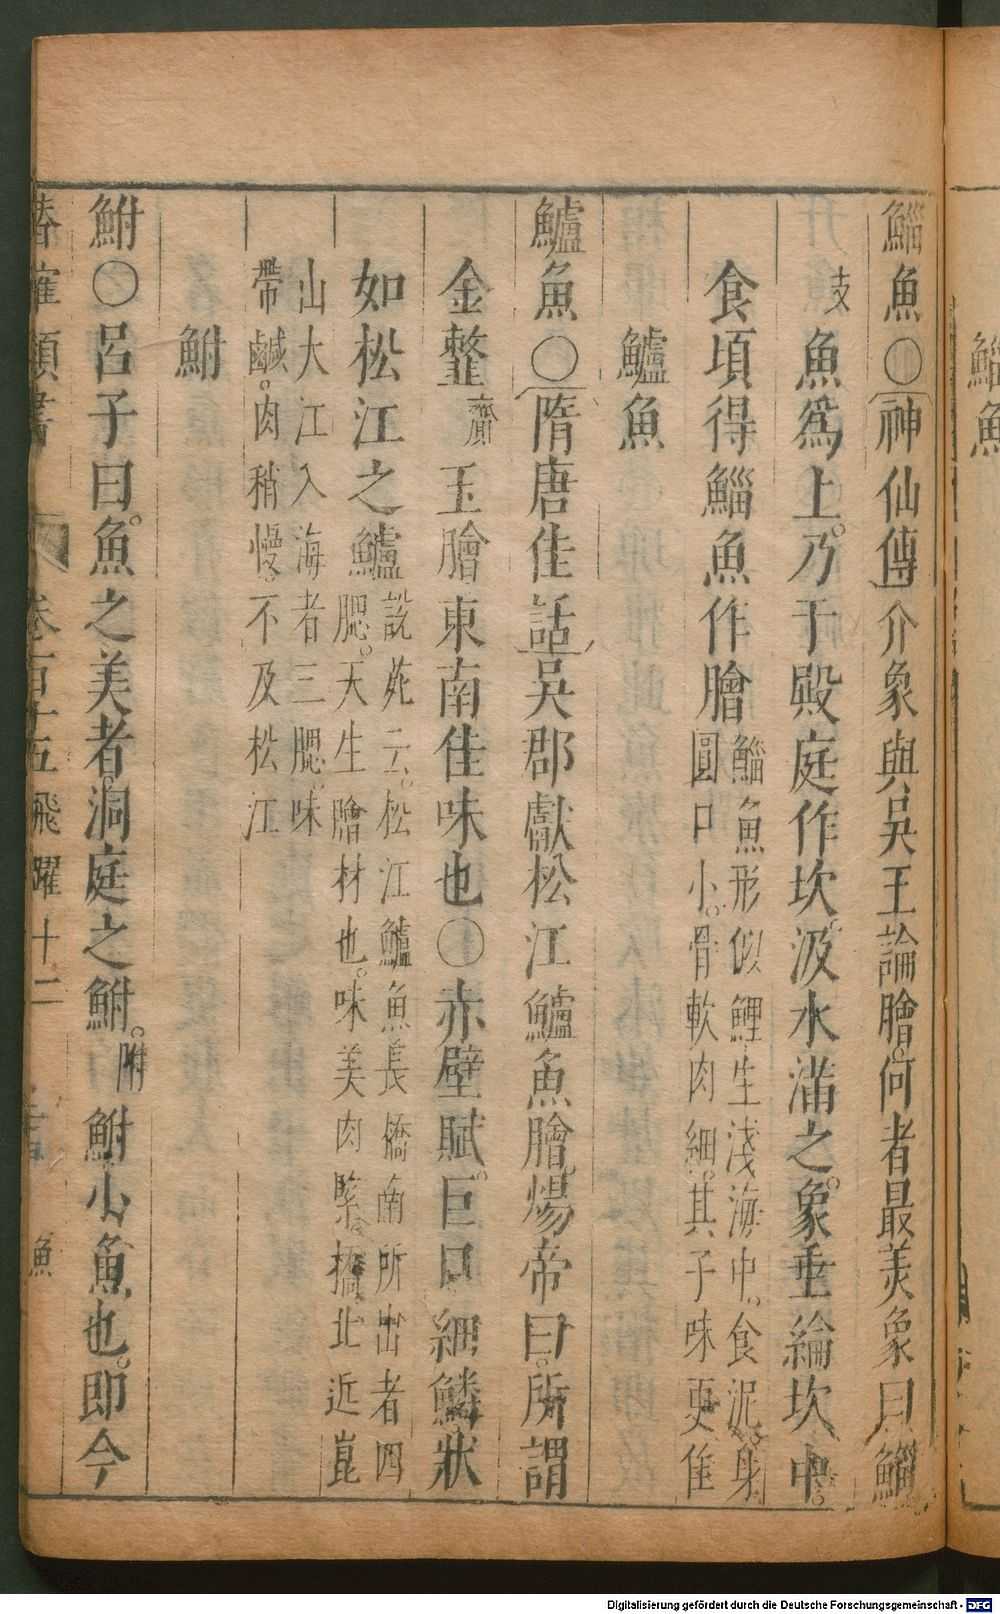 鯔魚
鯔魚〇神仙傳介象與吳王論膾何者最美象曰鯔
支
魚爲上乃于殿庭作坎汲水滿之象垂綸坎中
食頃得鯔魚作膾
鯔魚形似鯉生淺海中食泥身
圓口小骨軟肉細其子味更佳
鱸魚
鱸魚〇隋唐佳話吳郡獻松江鱸魚膾煬帝曰所謂
金虀
齎
玉膾東南佳味也〇赤壁賦巨口細鱗狀
如松江之鱸
說苑云松江鱸魚長橋南所出者四
腮天生膾材也味美肉緊橋北近崑
山大江入海者三腮味
帶鹹肉稍慢不及松江
鮒
鮒〇呂子曰魚之美者洞庭之鮒
附
鮒小魚也即今
卷百十五飛躍十二
魚
Digitalisierung gefördert durch die Deutsche Forschungsgemeinschaft - DFG